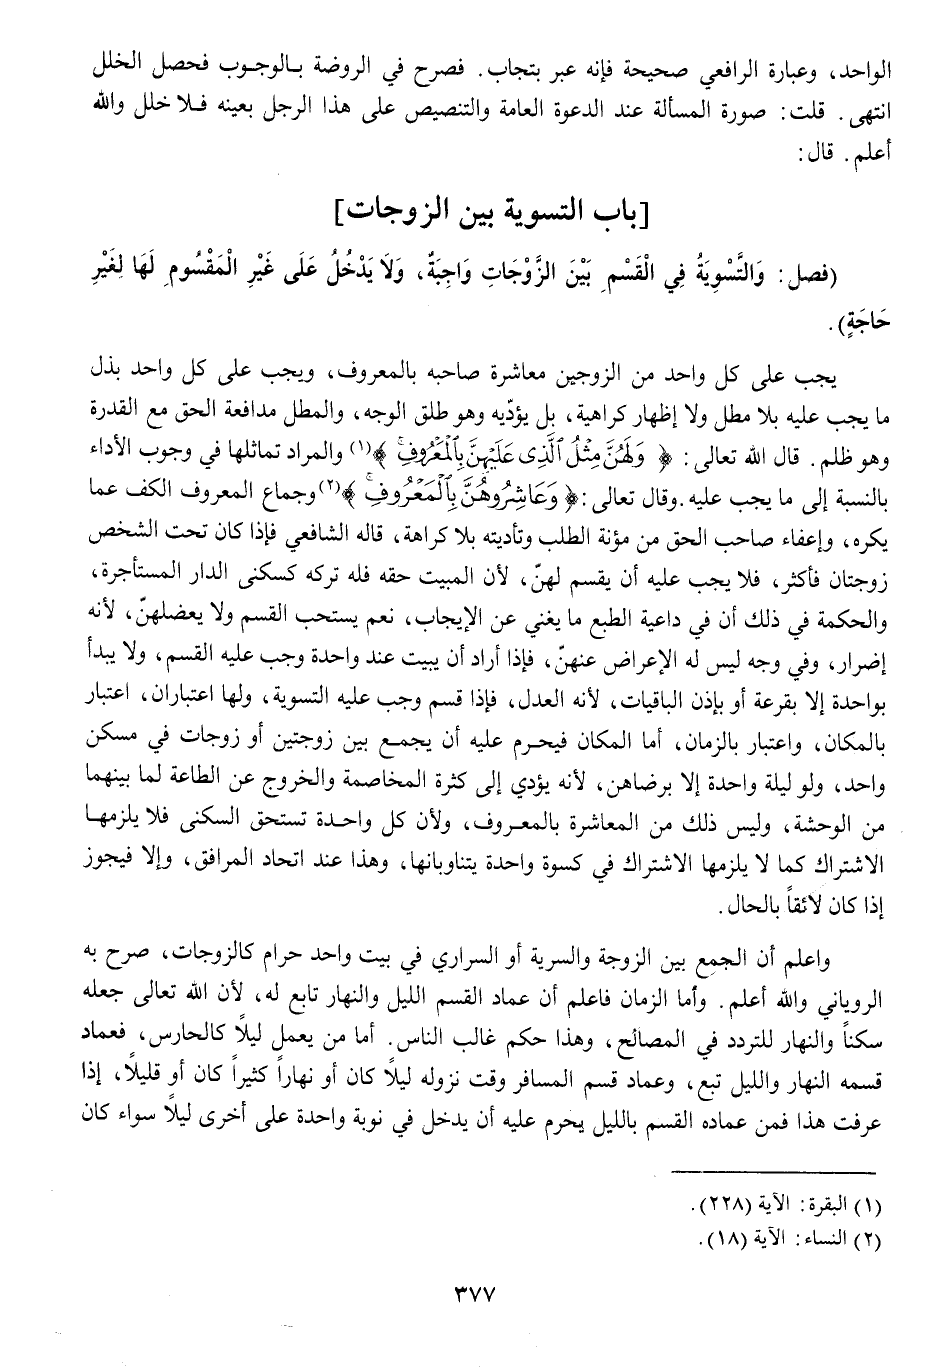 الواحد، وعبارة الرافعي صحيحة فإنه عبر بتجاب. فصرح في الروضة بالوجوب فحصل الخلل
انتهى. قلت: صورة المسألة عند الدعوة العامة والتنصيص على هذا الرجل بعينه فلا خلل والله
أعلم. قال:
[باب التسوية بين الزوجات]
(فصل: وَالتَّسْوِيَةُ فِي الْقَسْمِ بَيْنَ الزَّوْجَاتِ وَاجِبَةٌ، وَلَا يَدْخُلُ عَلَى غَيْرِ الْمَقْسُومِ لَهَا لِغَيْرِ
حَاجَةٍ).
يجب على كل واحد من الزوجين معاشرة صاحبه بالمعروف، ويجب على كل واحد بذل
ما يجب عليه بلا مطل ولا إظهار كراهية، بل يؤدّيه وهو طلق الوجه، والمطل مدافعة الحق مع القدرة
وهو ظلم. قال الله تعالى: ﴿ وَلَهُنَّ مِثْلُ ٱلَّذِى عَلَيْهِنَّ بِٱلْمَعْرُوفِ ﴾(١) والمراد تماثلها في وجوب الأداء
بالنسبة إلى ما يجب عليه. وقال تعالى: ﴿ وَعَاشِرُوهُنَّ بِٱلْمَعْرُوفِ ﴾(٢) وجماع المعروف الكف عما
يكره، وإعفاء صاحب الحق من مؤنة الطلب وتأديته بلا كراهة، قاله الشافعي فإذا كان تحت الشخص
زوجتان فأكثر، فلا يجب عليه أن يقسم لهنّ، لأن المبيت حقه فله تركه كسكنى الدار المستأجرة،
والحكمة في ذلك أن في داعية الطبع ما يغني عن الإيجاب، نعم يستحب القسم ولا يعضلهنّ، لأنه
إضرار، وفي وجه ليس له الإعراض عنهنّ، فإذا أراد أن يبيت عند واحدة وجب عليه القسم، ولا يبدأ
بواحدة إلا بقرعة أو بإذن الباقيات، لأنه العدل، فإذا قسم وجب عليه التسوية، ولها اعتباران، اعتبار
بالمكان، واعتبار بالزمان، أما المكان فيحرم عليه أن يجمع بين زوجتين أو زوجات في مسكن
واحد، ولو ليلة واحدة إلا برضاهن، لأنه يؤدي إلى كثرة المخاصمة والخروج عن الطاعة لما بينهما
من الوحشة، وليس ذلك من المعاشرة بالمعروف، ولأن كل واحدة تستحق السكنى فلا يلزمها
الاشتراك كما لا يلزمها الاشتراك في كسوة واحدة يتناوبانها، وهذا عند اتحاد المرافق، وإلا فيجوز
إذا كان لائقاً بالحال.
واعلم أن الجمع بين الزوجة والسرية أو السراري في بيت واحد حرام كالزوجات، صرح به
الروياني والله أعلم. وأما الزمان فاعلم أن عماد القسم الليل والنهار تابع له، لأن الله تعالى جعله
سكناً والنهار للتردد في المصالح، وهذا حكم غالب الناس. أما من يعمل ليلاً كالحارس، فعماد
قسمه النهار والليل تبع، وعماد قسم المسافر وقت نزوله ليلاً كان أو نهاراً كثيراً كان أو قليلاً، إذا
عرفت هذا فمن عماده القسم بالليل يحرم عليه أن يدخل في نوبة واحدة على أخرى ليلاً سواء كان
(١) البقرة: الآية (٢٢٨).
(٢) النساء: الآية (١٨).
٣٧٧